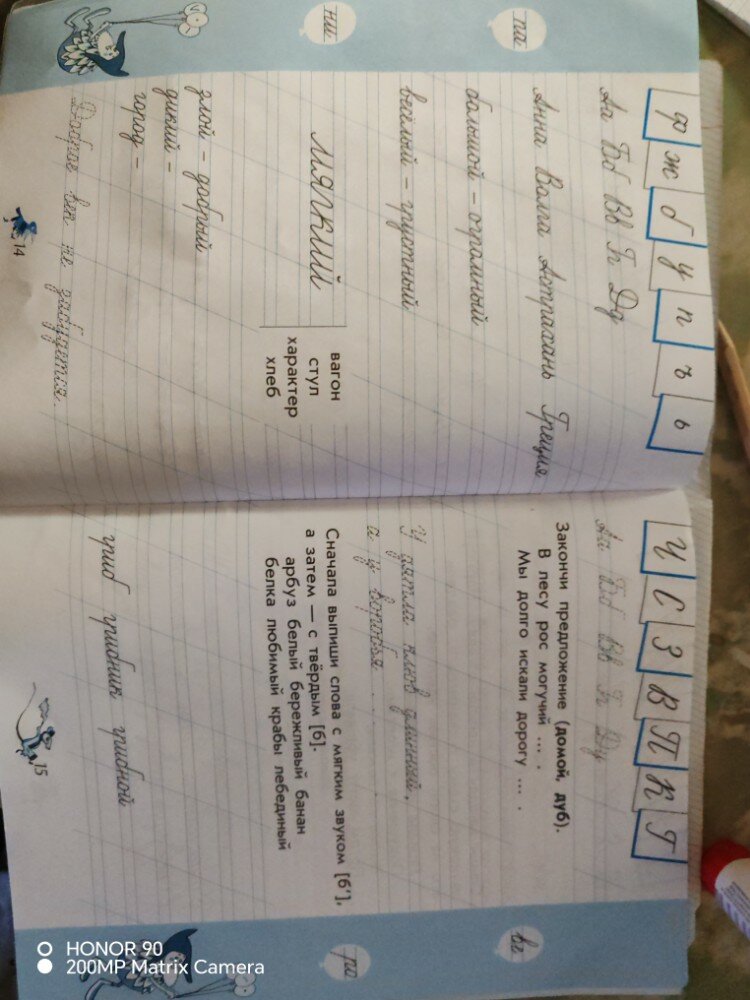 ф ж б у п ъ ь
Аа Бб Вв Гг Дд
па
Анна Волга Астрахань Греция
большой – огромный
весёлый – грустный
ни
мягкий
вагон
стул
характер
хлеб
злой – добрый
дикий –
город –
Доброе век не забудется.
14
Ч С З В П К Г
Аа Бб Вв Гг Дд
Закончи предложение (домой, дуб).
В лесу рос могучий ... .
Мы долго искали дорогу ... .
У дятла клюв длинный,
а у воробья
Сначала выпиши слова с мягким звуком [б'],
а затем — с твёрдым [б].
арбуз белый бережливый банан
белка любимый крабы лебединый
гриб грибник грибной
15
HONOR 90
200MP Matrix Camera